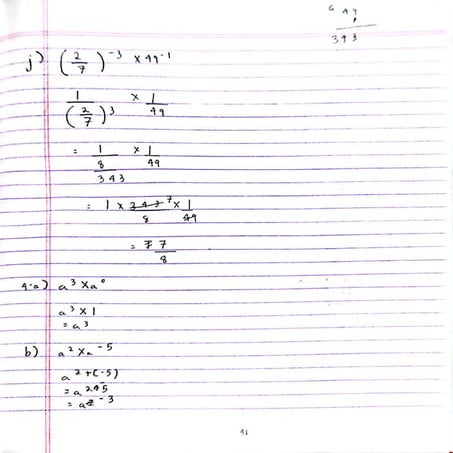 6 49
343
j) (2/7)^-3 × 49^-1
1/(2/7)^3 × 1/49
= 1/(8/343) × 1/49
= 1 × 343/8 7 × 1/49
= 7/8
4.a) a^3 × a^0
a^3 × 1
= a^3
b) a^2 × a^-5
a^2+(-5)
= a^2-5
= a^-3